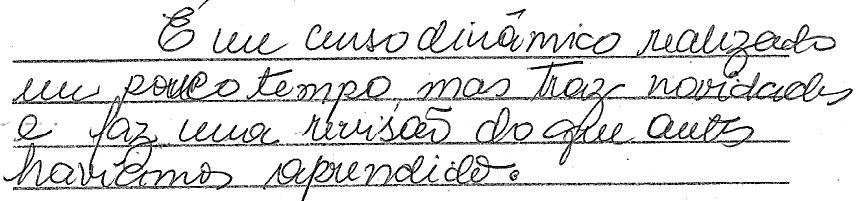 É um curso dinâmico realizado
em pouco tempo, mas traz novidades
e faz uma revisão do que antes
havíamos aprendido.